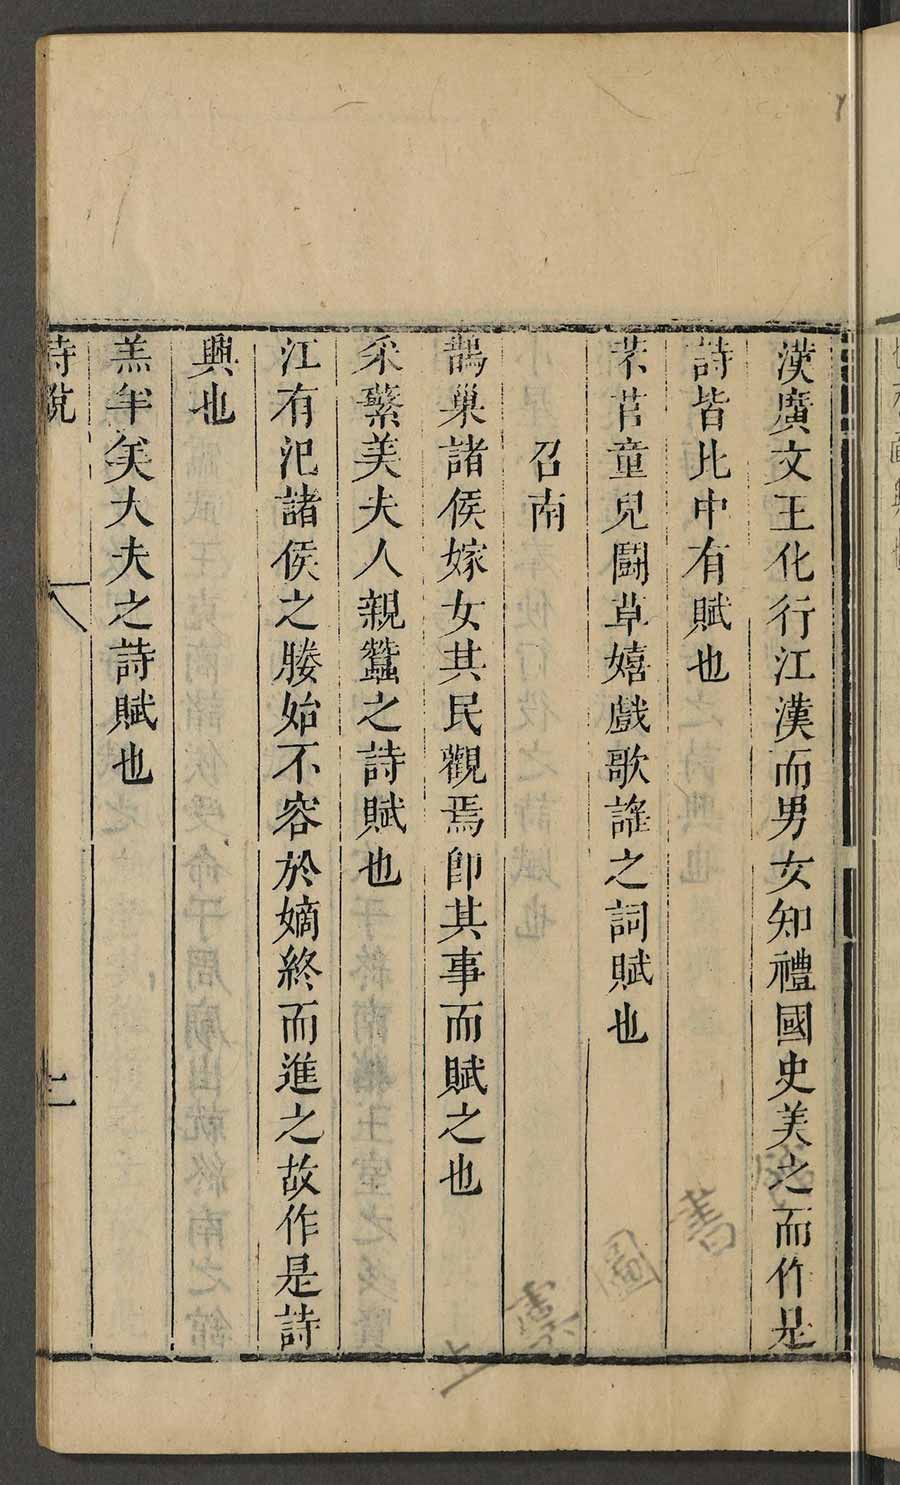 漢廣文王化行江漢而男女知禮國史美之而作是
詩皆比中有賦也
芣苢童兒鬪草嬉戲歌謠之詞賦也
召南
鵲巢諸侯嫁女其民觀焉卽其事而賦之也
采蘩美夫人親蠶之詩賦也
江有汜諸侯之媵始不容於嫡終而進之故作是詩
興也
羔羊美大夫之詩賦也
詩說
二